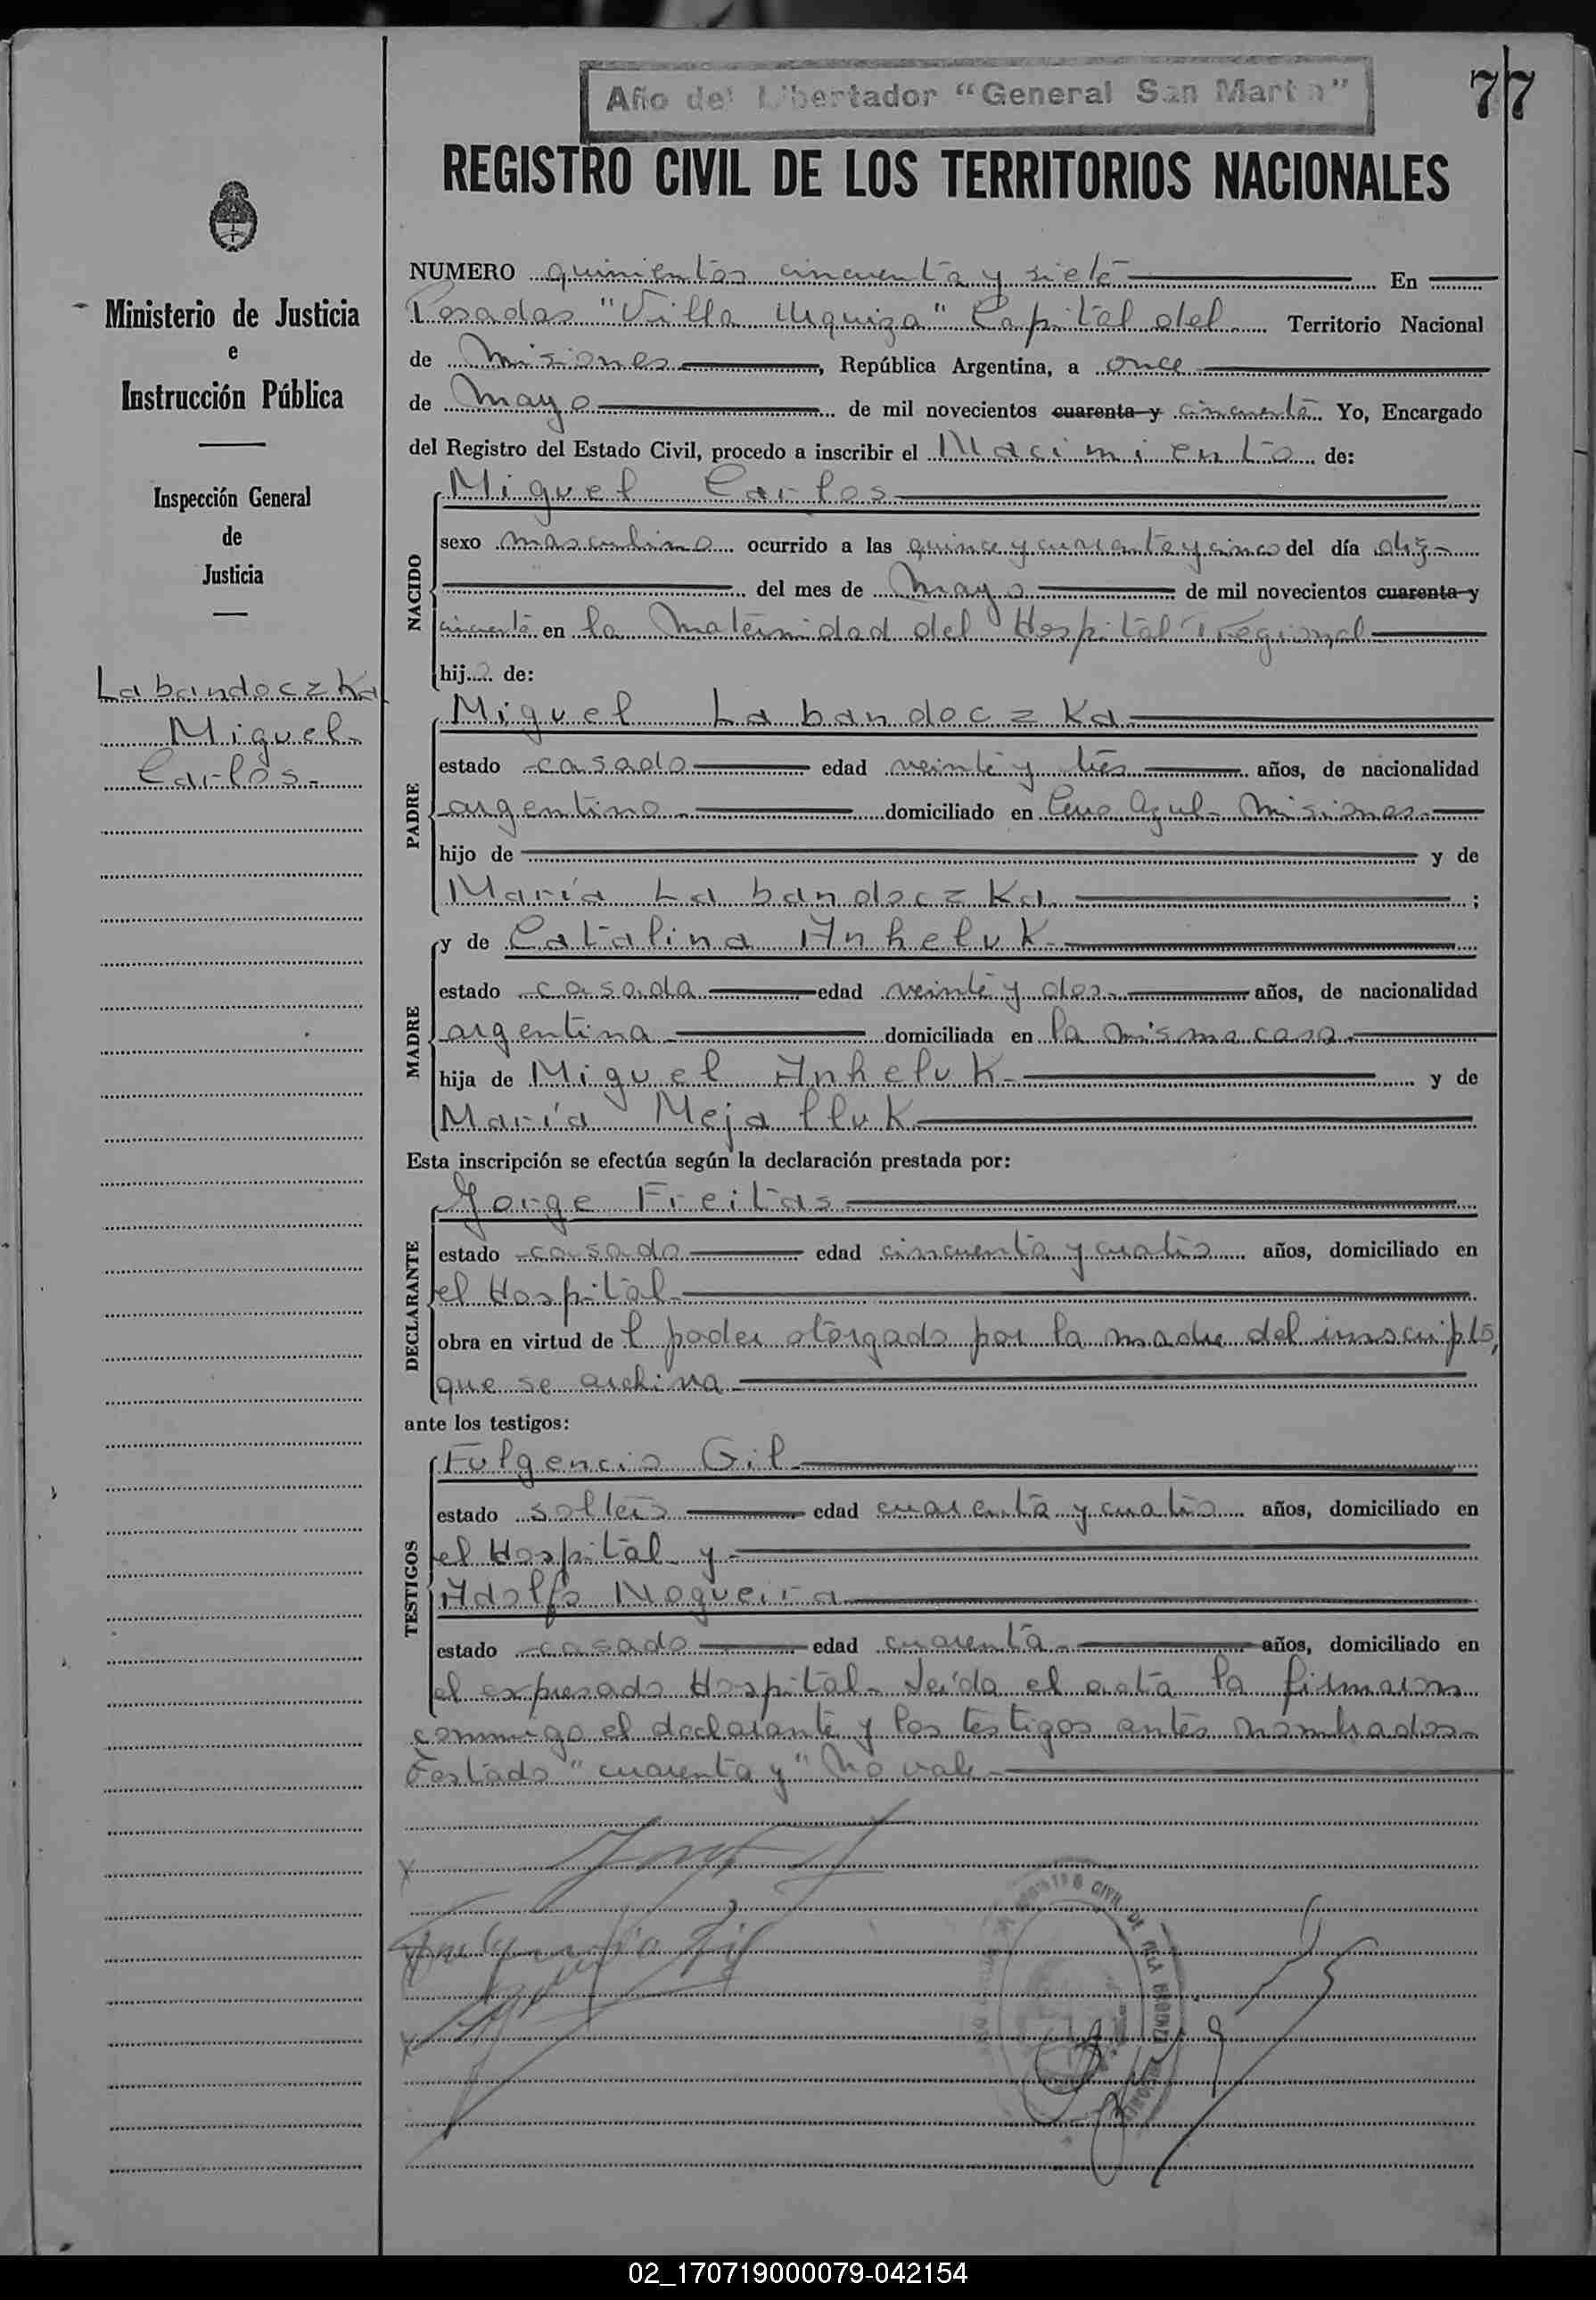 Año del Libertador "General San Martin"
77
REGISTRO CIVIL DE LOS TERRITORIOS NACIONALES
Ministerio de Justicia
e
Instrucción Pública
Inspección General
de
Justicia
Labandoczka
Miguel
Carlos
NUMERO quinientos cincuenta y siete En
Posadas "Villa Urquiza" Capital del Territorio Nacional
de Misiones, República Argentina, a once
de Mayo de mil novecientos cuarenta y cincuenta Yo, Encargado
del Registro del Estado Civil, procedo a inscribir el Nacimiento de:
NACIDO
Miguel Carlos
sexo masculino ocurrido a las quince y cuarenta y cinco del día diez
del mes de Mayo de mil novecientos cuarenta y
cincuenta en la Maternidad del Hospital Regional
hijo de:
PADRE
Miguel Labandoczka
estado casado edad veinte y tres años, de nacionalidad
argentino domiciliado en Cerro Azul- Misiones
hijo de y de
María Labandoczka ;
MADRE
y de Catalina Anheluk
estado casada edad veinte y dos años, de nacionalidad
argentina domiciliada en la misma casa
hija de Miguel Anheluk y de
María Mejalluk
Esta inscripción se efectúa según la declaración prestada por:
DECLARANTE
Jorge Freitas
estado casado edad cincuenta y cuatro años, domiciliado en
el Hospital
obra en virtud de l poder otorgado por la madre del inscripto,
que se archiva
ante los testigos:
TESTIGOS
Fulgencio Gil
estado soltero edad cuarenta y cuatro años, domiciliado en
el Hospital y
Adolfo Nogueira
estado casado edad cuarenta años, domiciliado en
el expresado Hospital- Leída el acta la firmaron
conmigo el declarante y los testigos antes nombrados-
Testado "cuarenta y" No vale
Fulgencio Gil
02_170719000079-042154